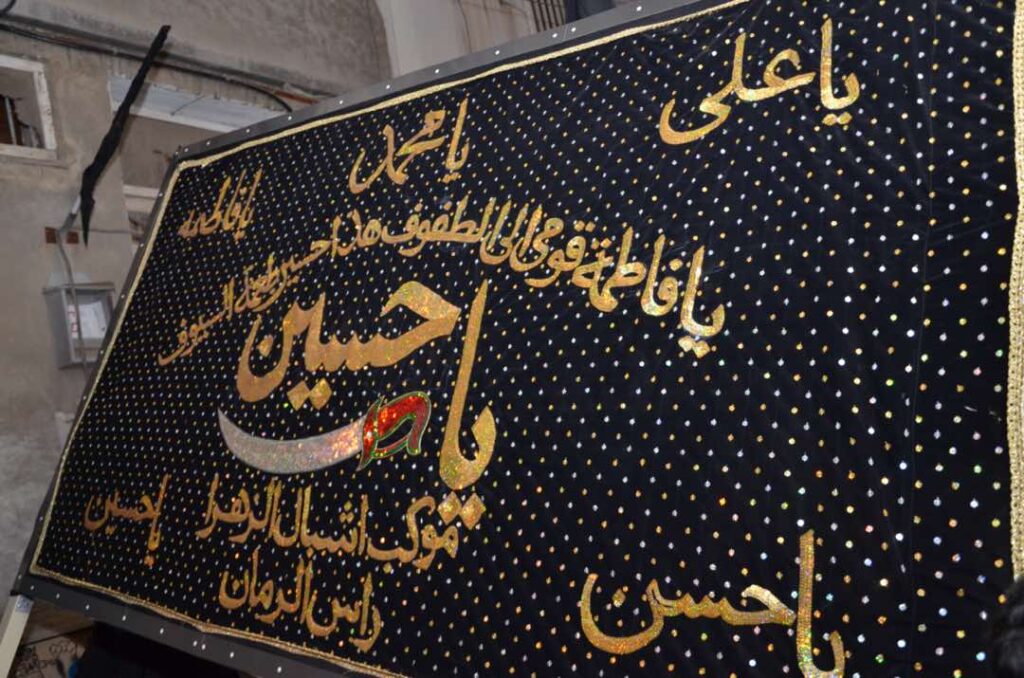 يا علي
يا محمد
يا فاطمه
يا فاطمة قومي الى الطفوف هذا حسين طعمة السيوف
يا حسين
موكب اشبال الزهرا
راس الرمان
يا حسين
يا حسن